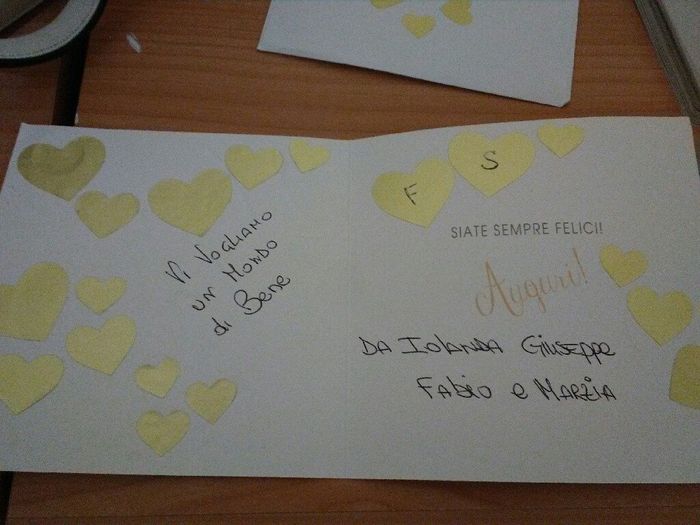 Vi Vogliamo
un Mondo
di Bene
F
S
SIATE SEMPRE FELICI!
Auguri!
DA IOLANDA GIUSEPPE
FABIO e MARZIA